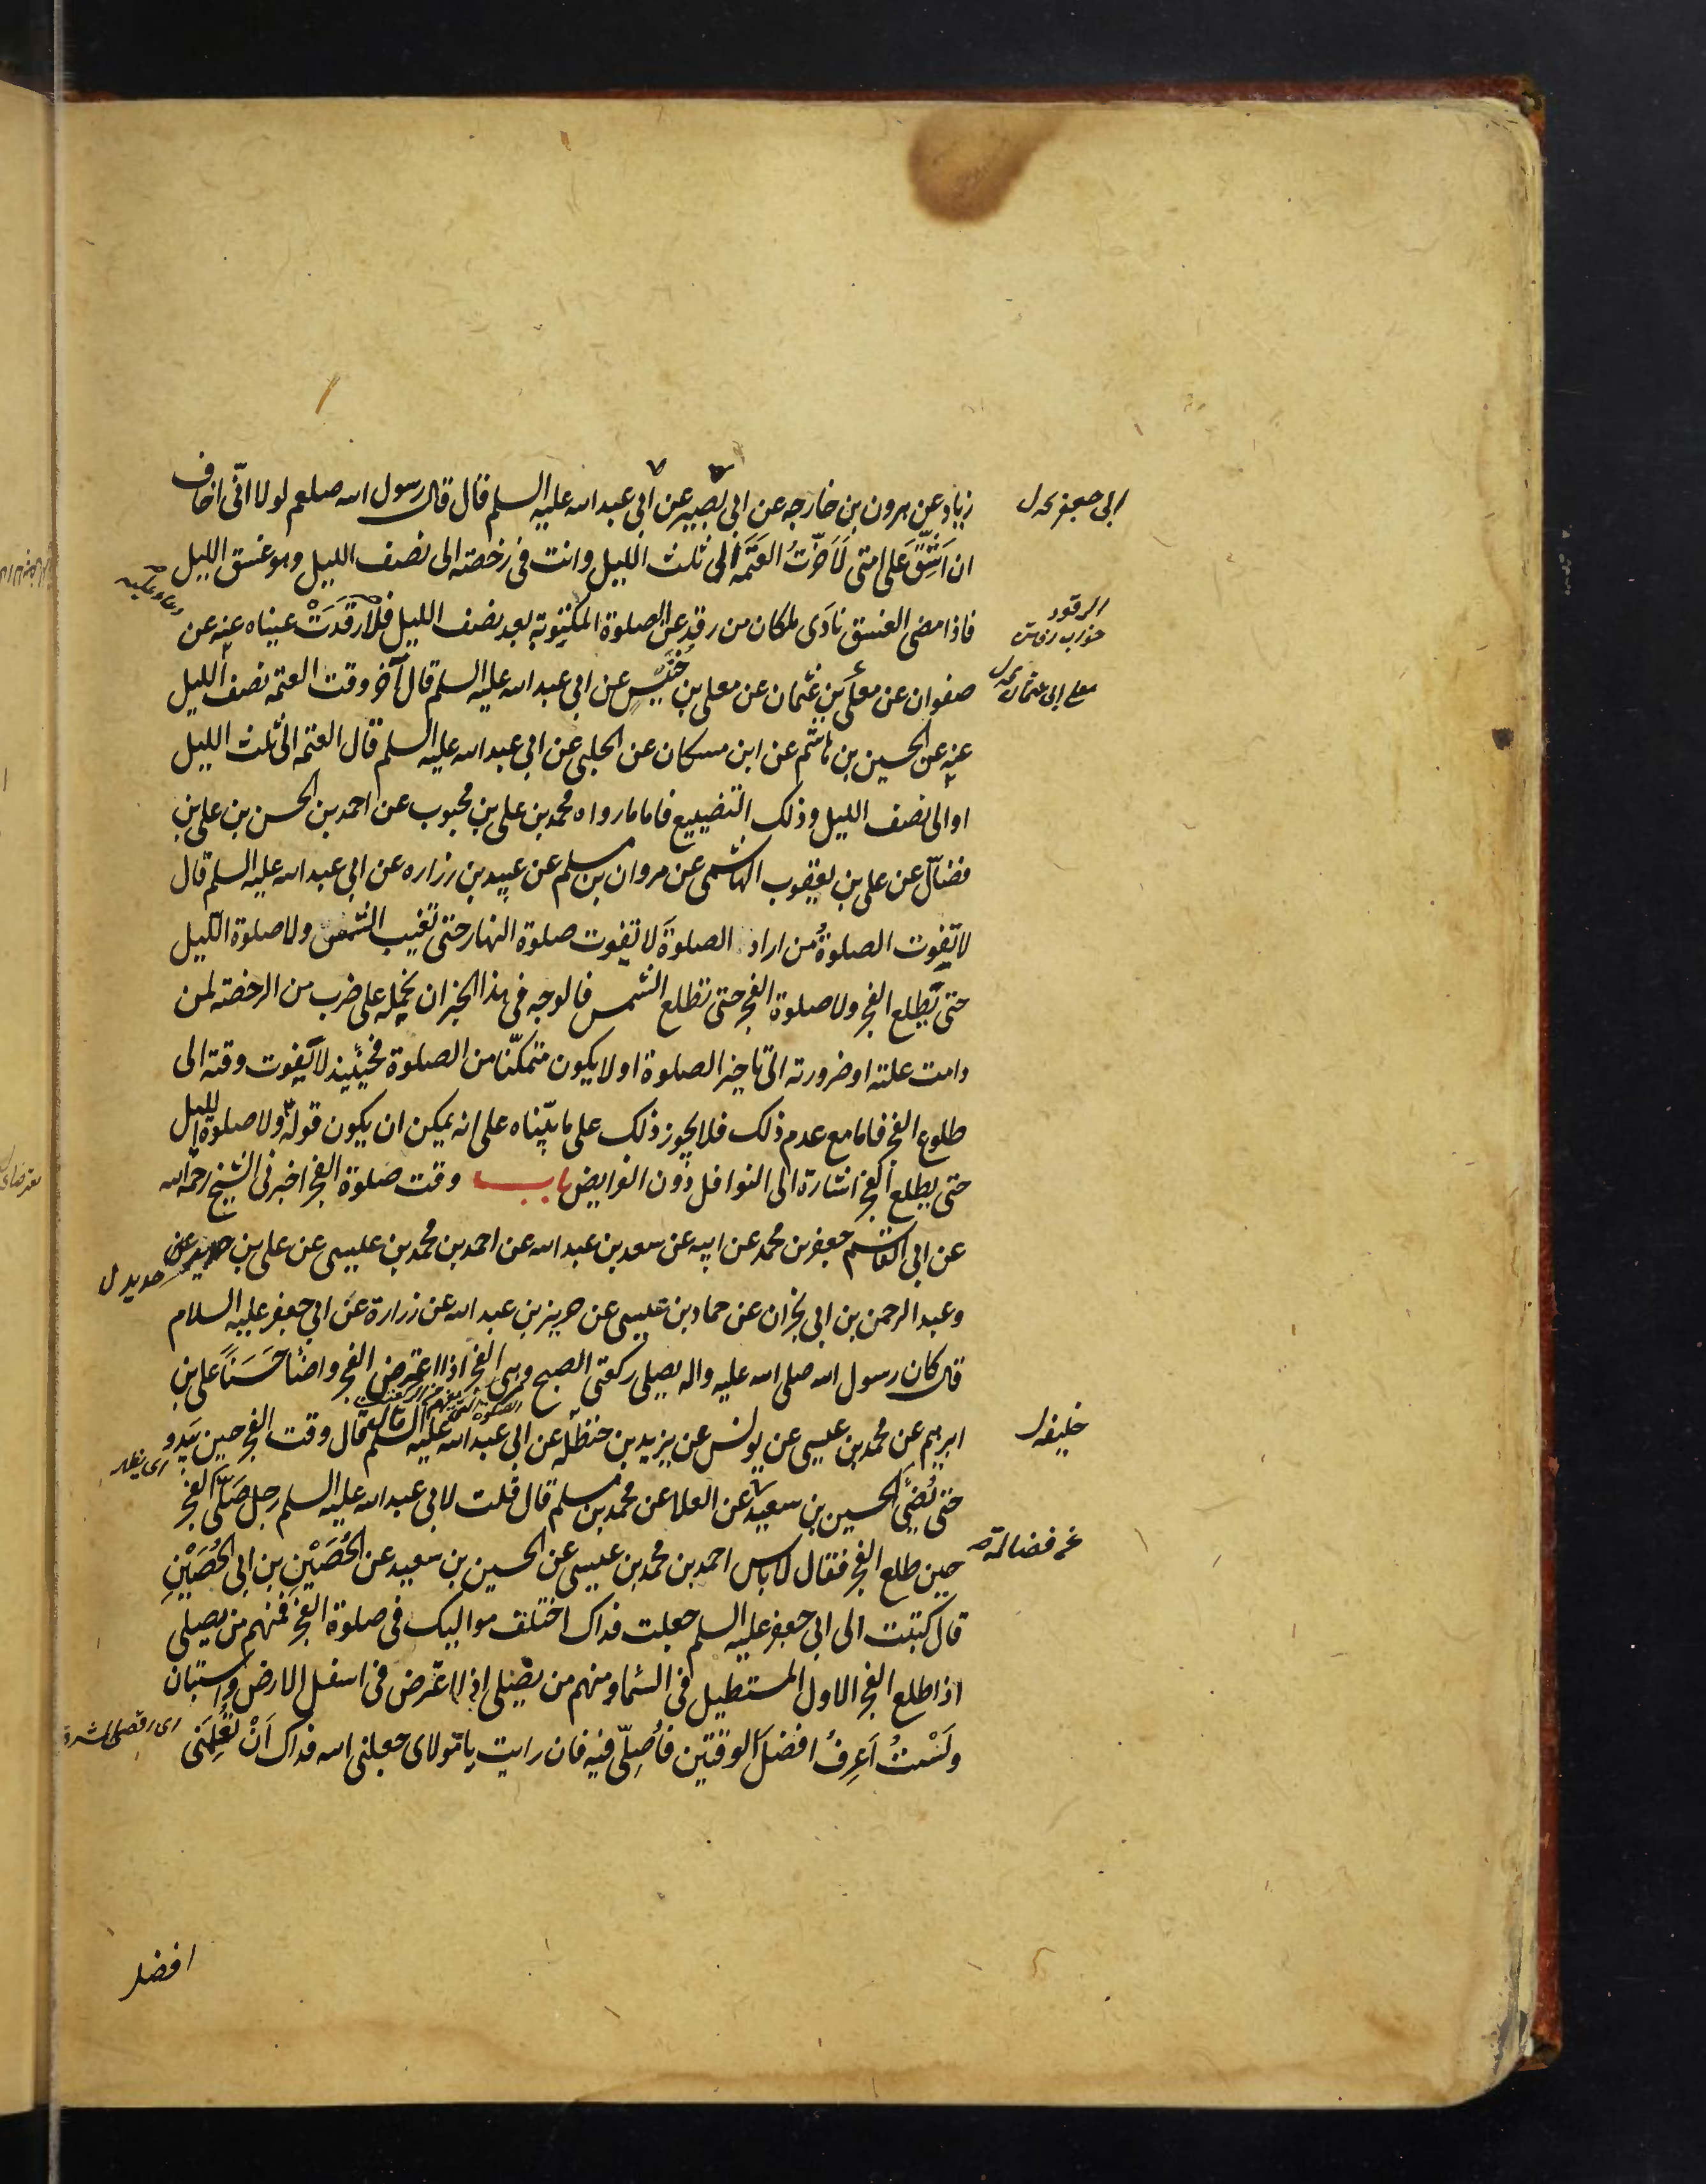 زياد عن هرون بن خارجه عن ابى بصير عن ابى عبد الله عليه السلم قال قال رسول الله صلعم لولا انّى اخاف
ابى جعفر نحه ل
ان اَشُقّ عَلى امتى لَاَخّرْتُ العَتَمَه الى ثلث الليل وانت فى رخصته الى نصف الليل وهو غسق الليل
فاذا مضى الغسق نادَى ملكان من رقد عن الصلوة المكتوبة بعد نصف الليل فلا رَقَدَتْ عيناه عنه عن
الرقود
صفوان عن معلّى بن عثمان عن معلى بن خُنَيْسٍ عن ابى عبد الله عليه السلم قال آخر وقت العتمه نصف الليل
معلى ابى عثمان نحه ل
عنه عن الحسين بن هاشم عن ابن مسكان عن الحلبى عن ابى عبد الله عليه السلم قال العتمه الى ثلث الليل
او الى نصف الليل وذلك التضييع فاما ما رواه محمد بن على بن محبوب عن احمد بن الحسن بن على بن
فضّال عن على بن يعقوب الهاشمى عن مروان بن مسلم عن عبيد بن زراره عن ابى عبد الله عليه السلم قال
لا تفوت الصلوةُ من اراد الصلوةَ لا تفوت صلوة النهار حتى تغيب الشمس ولا صلوة الليل
حتى يطلع الفجر ولا صلوة الفجر حتى تطلع الشمس فالوجه فى هذا الخبر ان نحمله على ضرب من الرخصة لمن
دامت علته او ضرورته الى تاخير الصلوة او لا يكون متمكّنا من الصلوة فحينئيذ لا يفوت وقته الى
طلوع الفجر فاما مع عدم ذلك فلا يجوز ذلك على ما بيّناه على انه يمكن ان يكون قوله ولا صلوة الليل
حتى يطلع الفجر اشارة الى النوافل دون الفرايض باب وقت صلوة الفجر اخبرنى الشيخ رحمه الله
عن ابى القاسم جعفر بن محمد عن ابيه عن سعد بن عبد الله عن احمد بن محمد بن عيسى عن على بن حديد
حديد ل
وعبد الرحمن بن ابى نجران عن حماد بن عيسى عن حريز بن عبد الله عن زرارة عن ابى جعفر عليه السلام
قال كان رسول الله صلى الله عليه واله يصلى ركعتى الصبح وهى الفجر اذا اعترض الفجر واضأ حَسَنًا على بن
ابرهيم عن محمد بن عيسى عن يونس عن يزيد بن خنظله عن ابى عبد الله عليه السلم قال وقت الفجر حين يَبدو
خليفه ل
اى يظهر
حتى يُضئَ الحسين بن سعيد عن العلا عن محمد بن مسلم قال قلت لابى عبد الله عليه السلم رجل صَلّى الفجر
حين طلع الفجر فقال لا باس احمد بن محمد بن عيسى عن الحسين بن سعيد عن الحُصَيْنِ بن ابى الحُصَيْنِ
عن فضالة
قال كتبت الى ابى جعفر عليه السلم جعلت فداك اختلف مواليك فى صلوة الفجر فمنهم من يصلى
اذا طلع الفجر الاول المستطيل فى السّماء ومنهم من يصلى اذا اعترض فى اسفل الارض واستبان
ولَسْتُ اَعرِفُ افضلَ الوقتين فاُصلّى فيه فان رايت يا مولاى جعلنى الله فداك اَنْ تُعلّمَنى
افضل